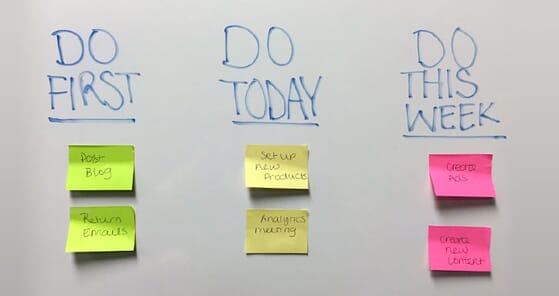 DO
FIRST
Post
Blog
Return
Emails
DO
TODAY
Set up
new
Products
Analytics
meeting
DO
THIS
WEEK
Create
Ads
Create
new
content